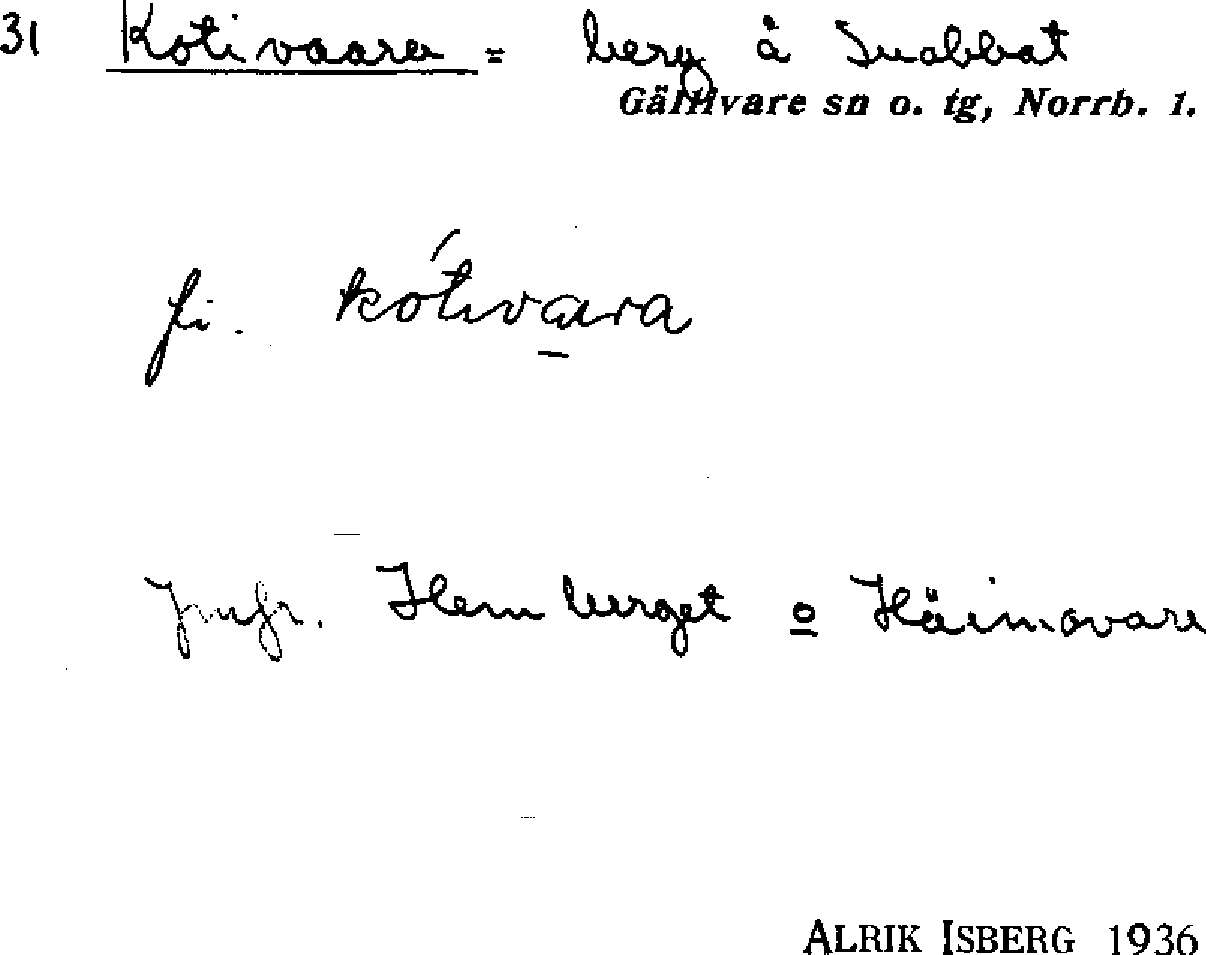 31 Kotivaara = berg å Suobbat
Gällivare sn o. tg, Norrb. l.
fi. kótivara
Jmfr. Hemberget o Häimovare
ALRIK ISBERG 1936